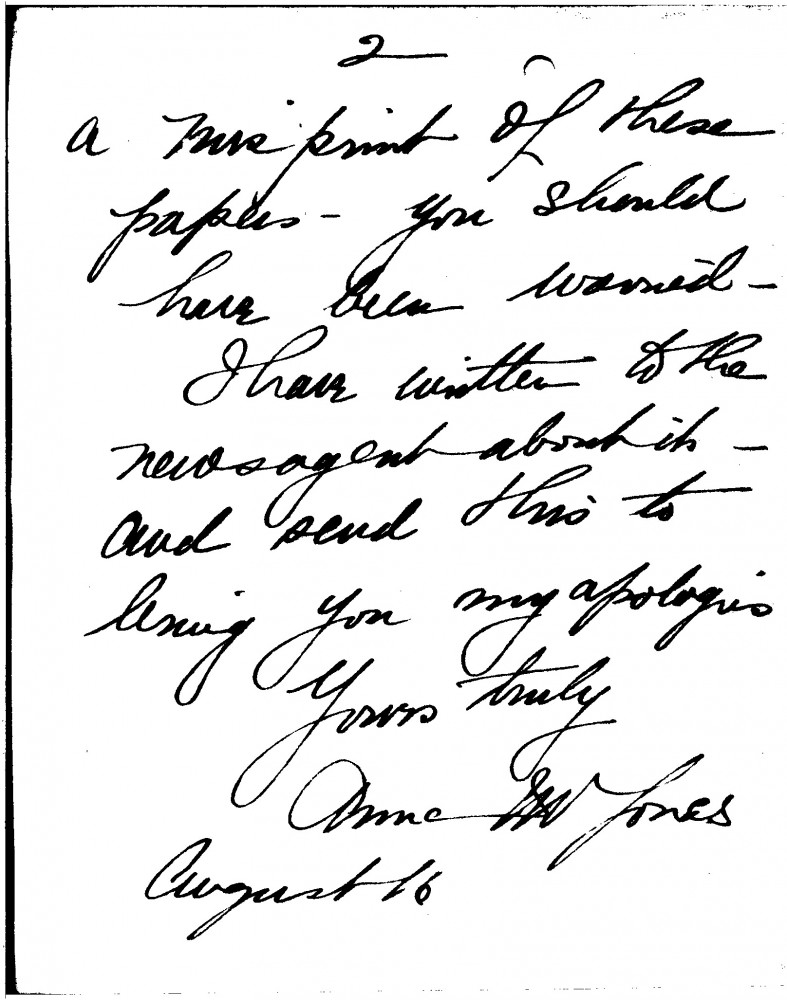 2
a misprint of these
papers - you should
have been warned -
I have written to the
newsagent about it -
and send this to
bring you my apologies
Yours truly
Anne Jones
August 16